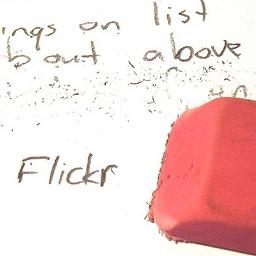 ings on list
bout above
Flickr